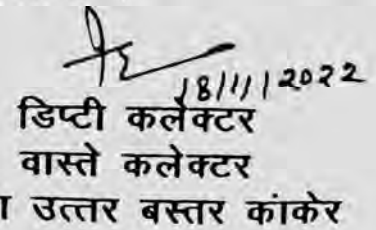 18/11/2022
डिप्टी कलेक्टर
वास्ते कलेक्टर
उत्तर बस्तर कांकेर